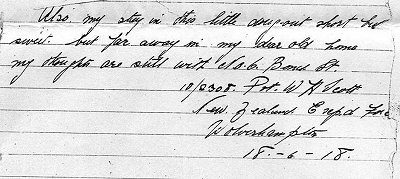 Also, my stay in this little dug-out short but
sweet. but far away in my dear old home
my thoughts are still with No 6. Bond St.
10/2308. Pvt. W H Scott
New Zealand Exp'd Force
Wolverhampton
18-6-18.